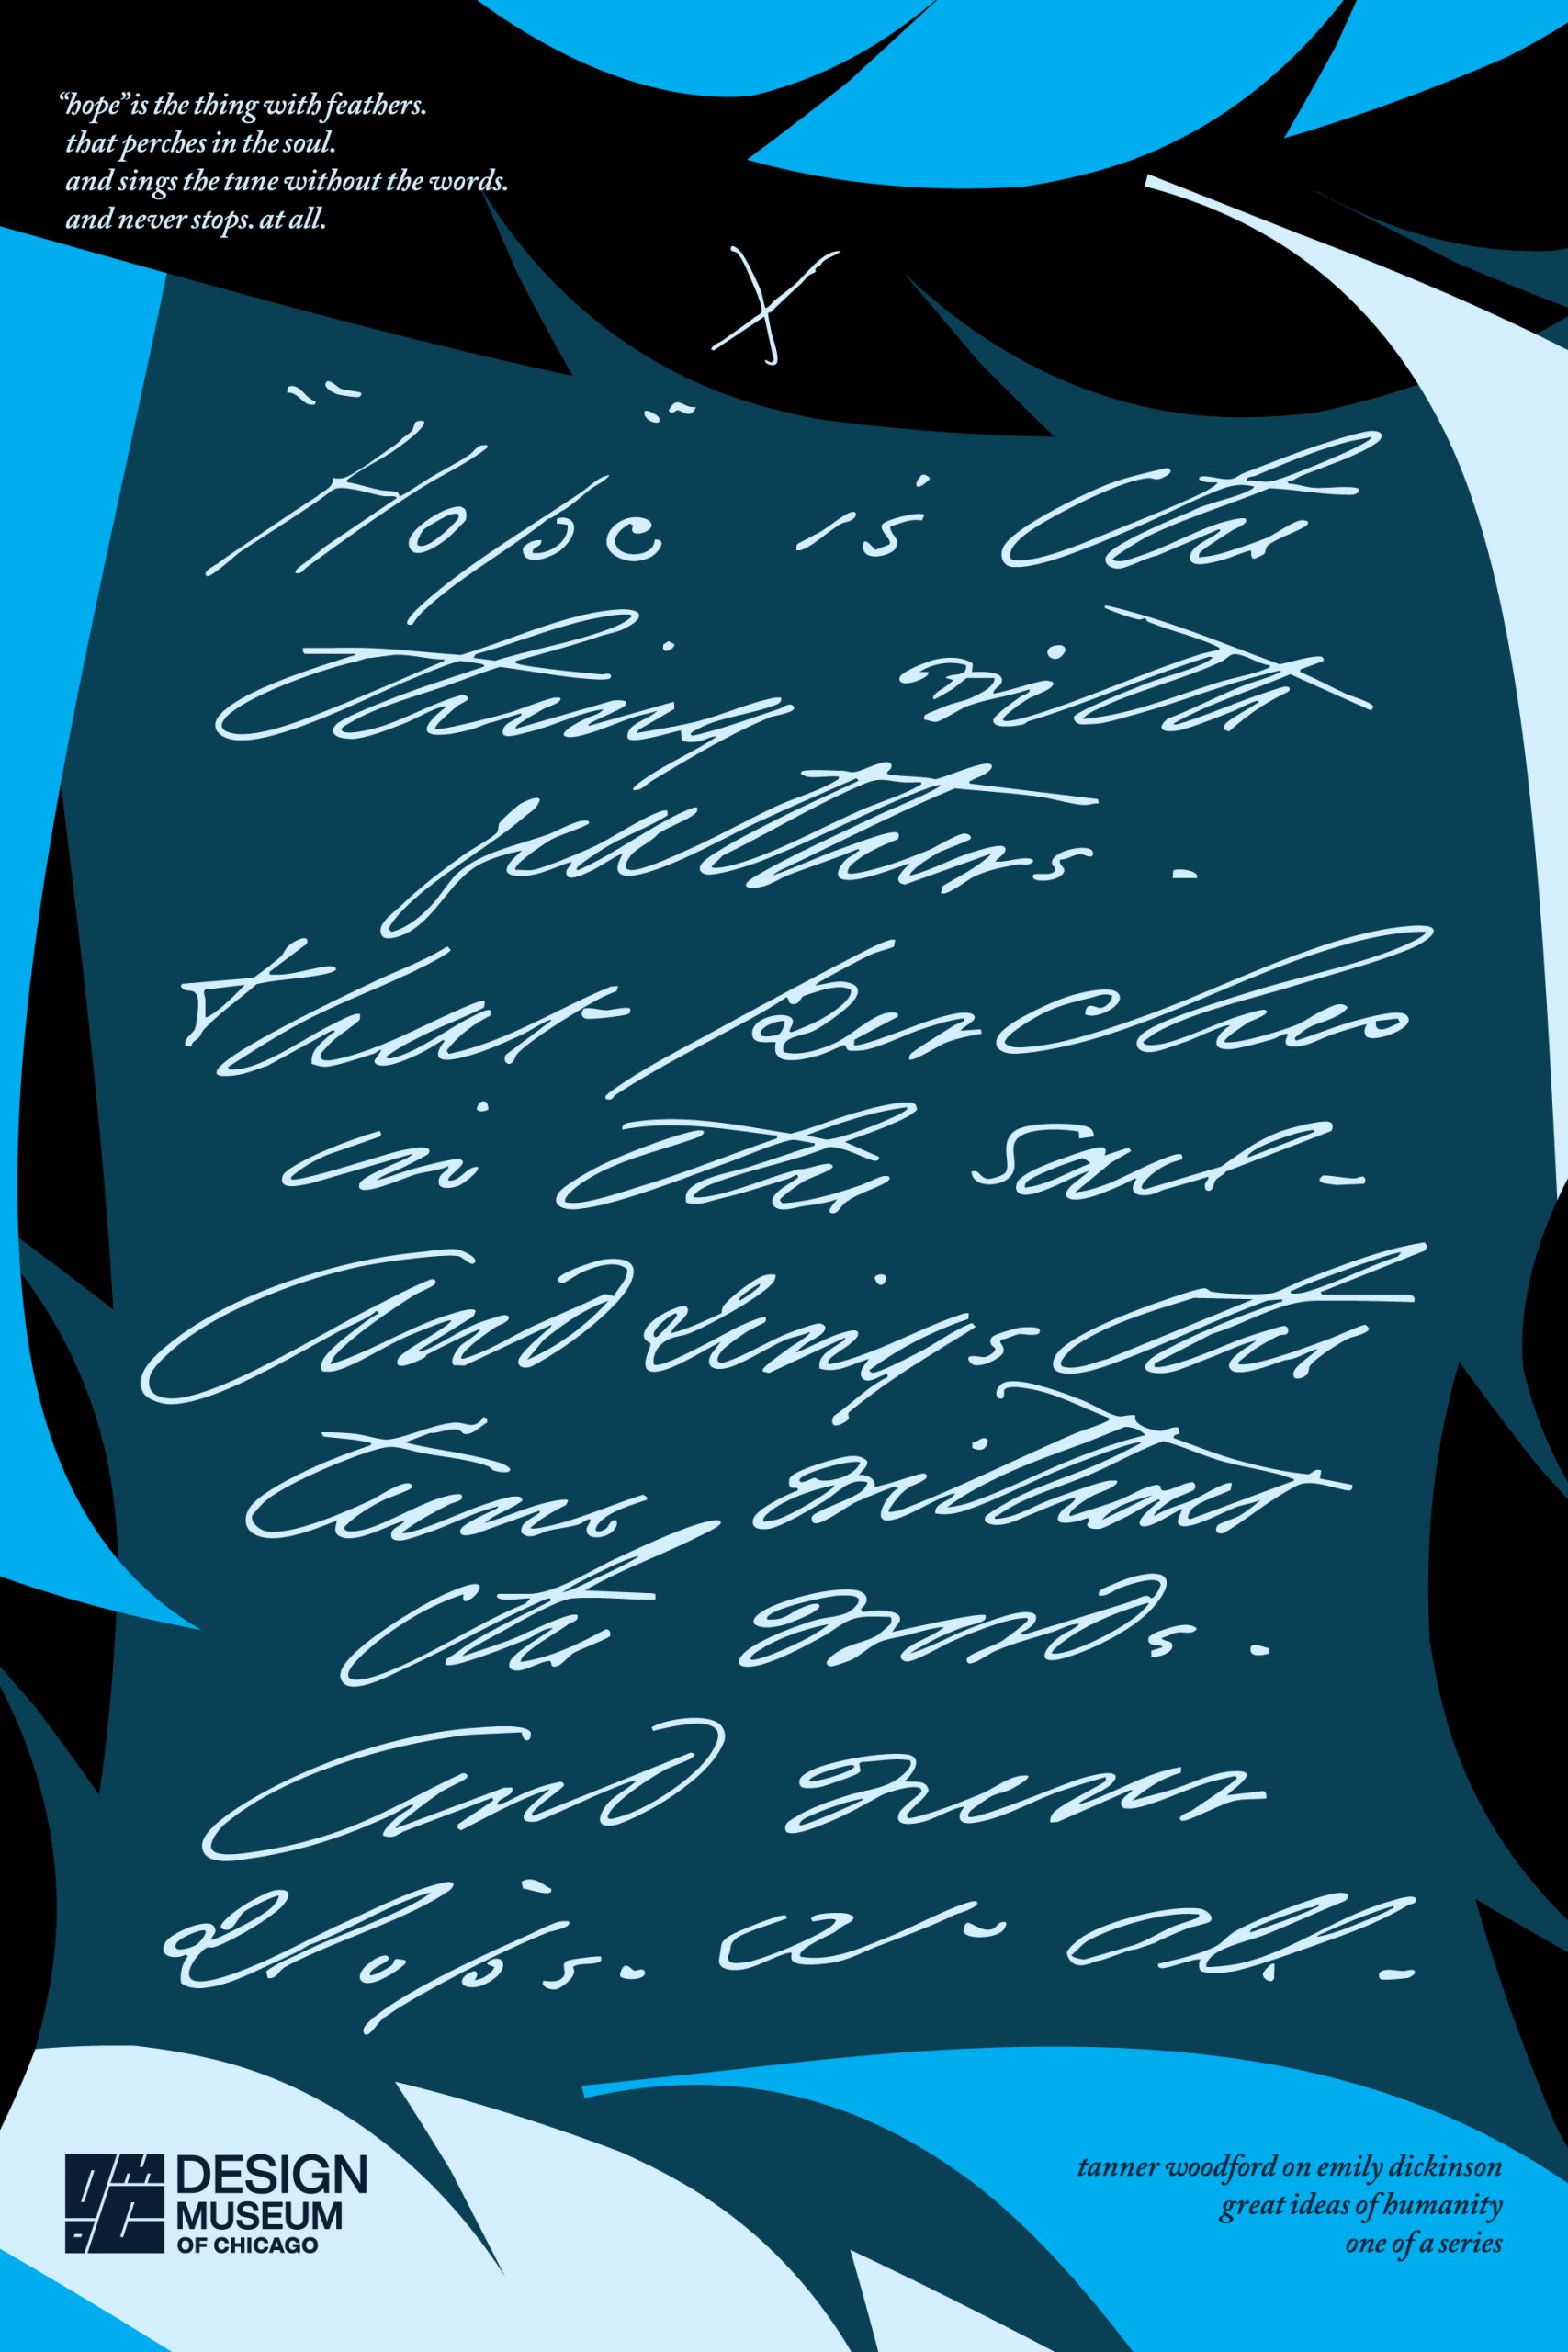 “hope” is the thing with feathers.
that perches in the soul.
and sings the tune without the words.
and never stops. at all.
X
"Hope" is the
thing with
feathers -
That perches
in the soul -
And sings the
tune without
the words -
And never
stops - at all -
DESIGN
MUSEUM
OF CHICAGO
tanner woodford on emily dickinson
great ideas of humanity
one of a series